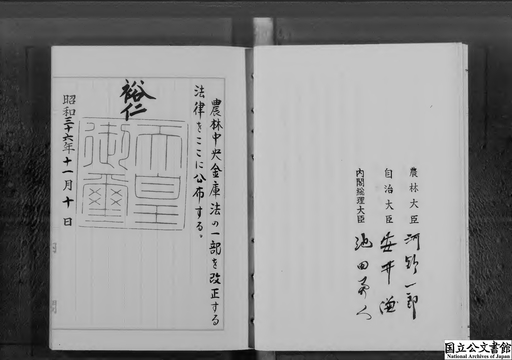 農林中央金庫法の一部を改正する
法律をここに公布する。
裕仁
天皇
御璽
昭和三十六年十一月十日
農林大臣 河野一郎
自治大臣 安井謙
内閣総理大臣 池田勇人
国立公文書館
National Archives of Japan